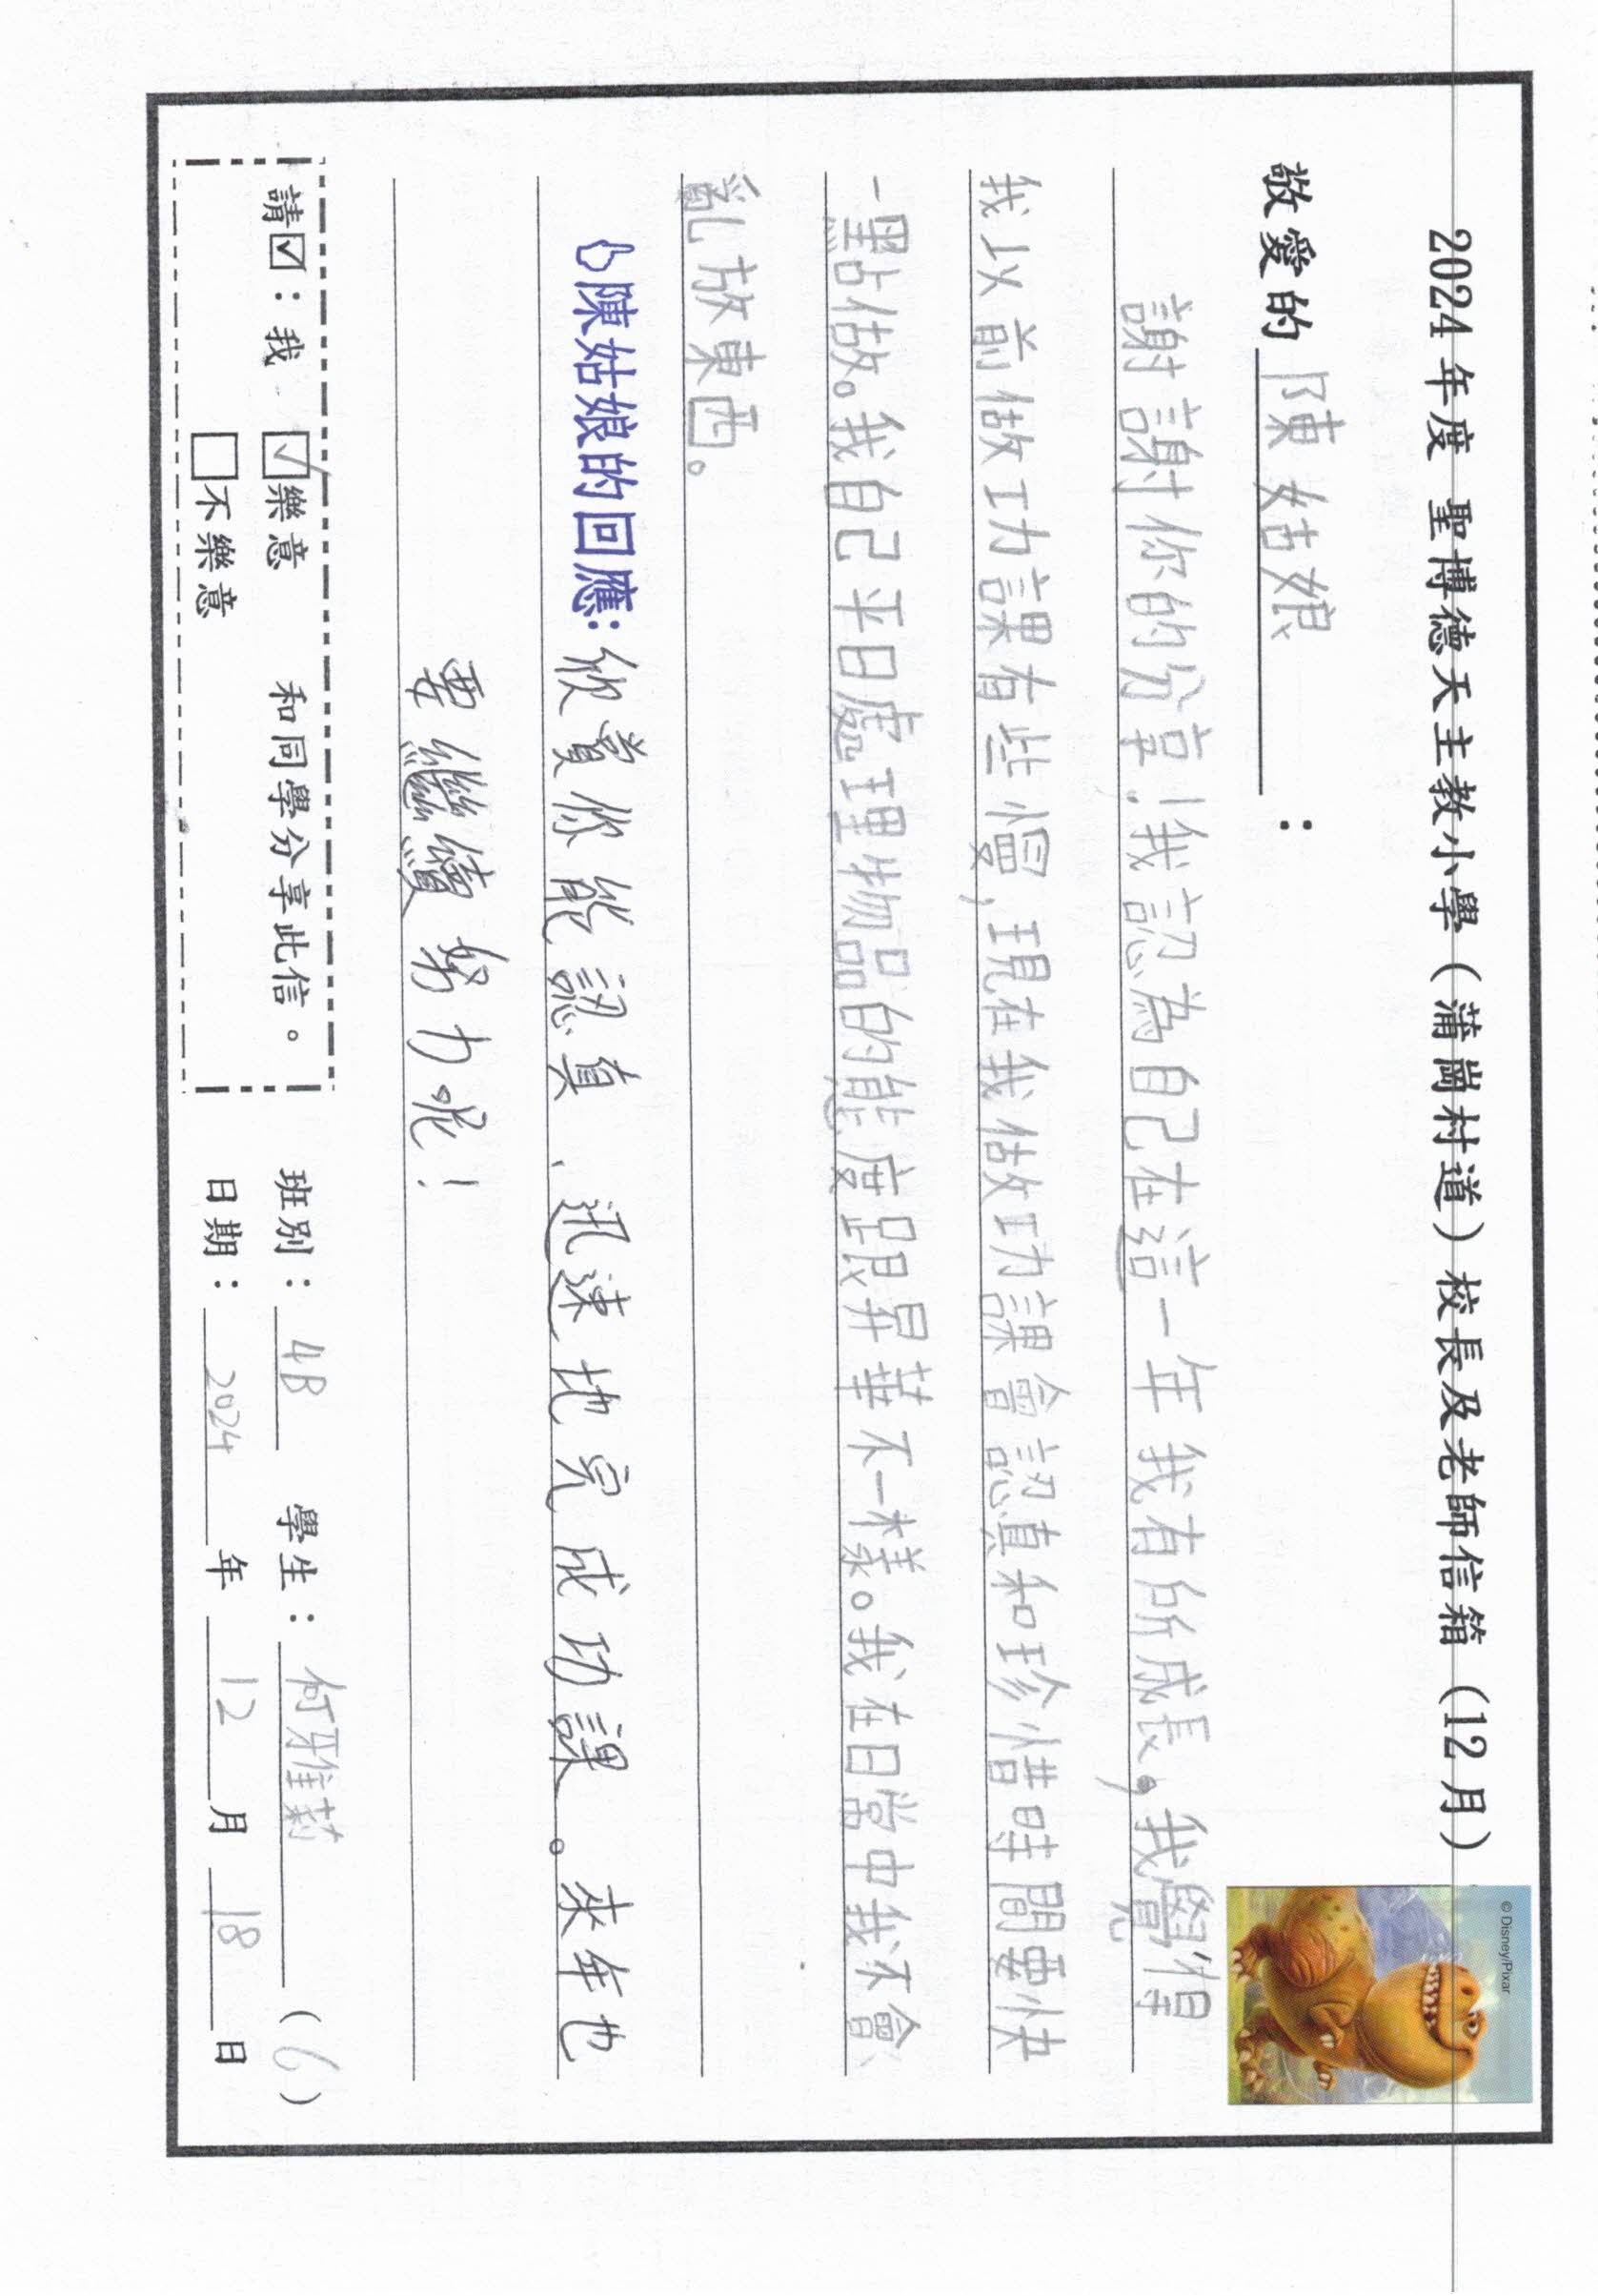 2024年度 聖博德天主教小學（蒲崗村道）校長及老師信箱（12月）
© Disney/Pixar
敬愛的 陳姑娘 ：
謝謝你的分享！我認為自己在這一年我有所成長，我覺得
我以前做功課有些慢，現在我做功課會認真和珍惜時間要快
一點做。我自己平日處理物品的態度跟昇華不一樣。我在日常中我不會
亂放東西。
陳姑娘的回應：欣賞你能認真、迅速地完成功課。來年也
要繼續努力呢！
請☑：我 ☑樂意 和同學分享此信。
□不樂意
班別：4B 學生：何雅莉 （6）
日期：2024 年 12 月 18 日